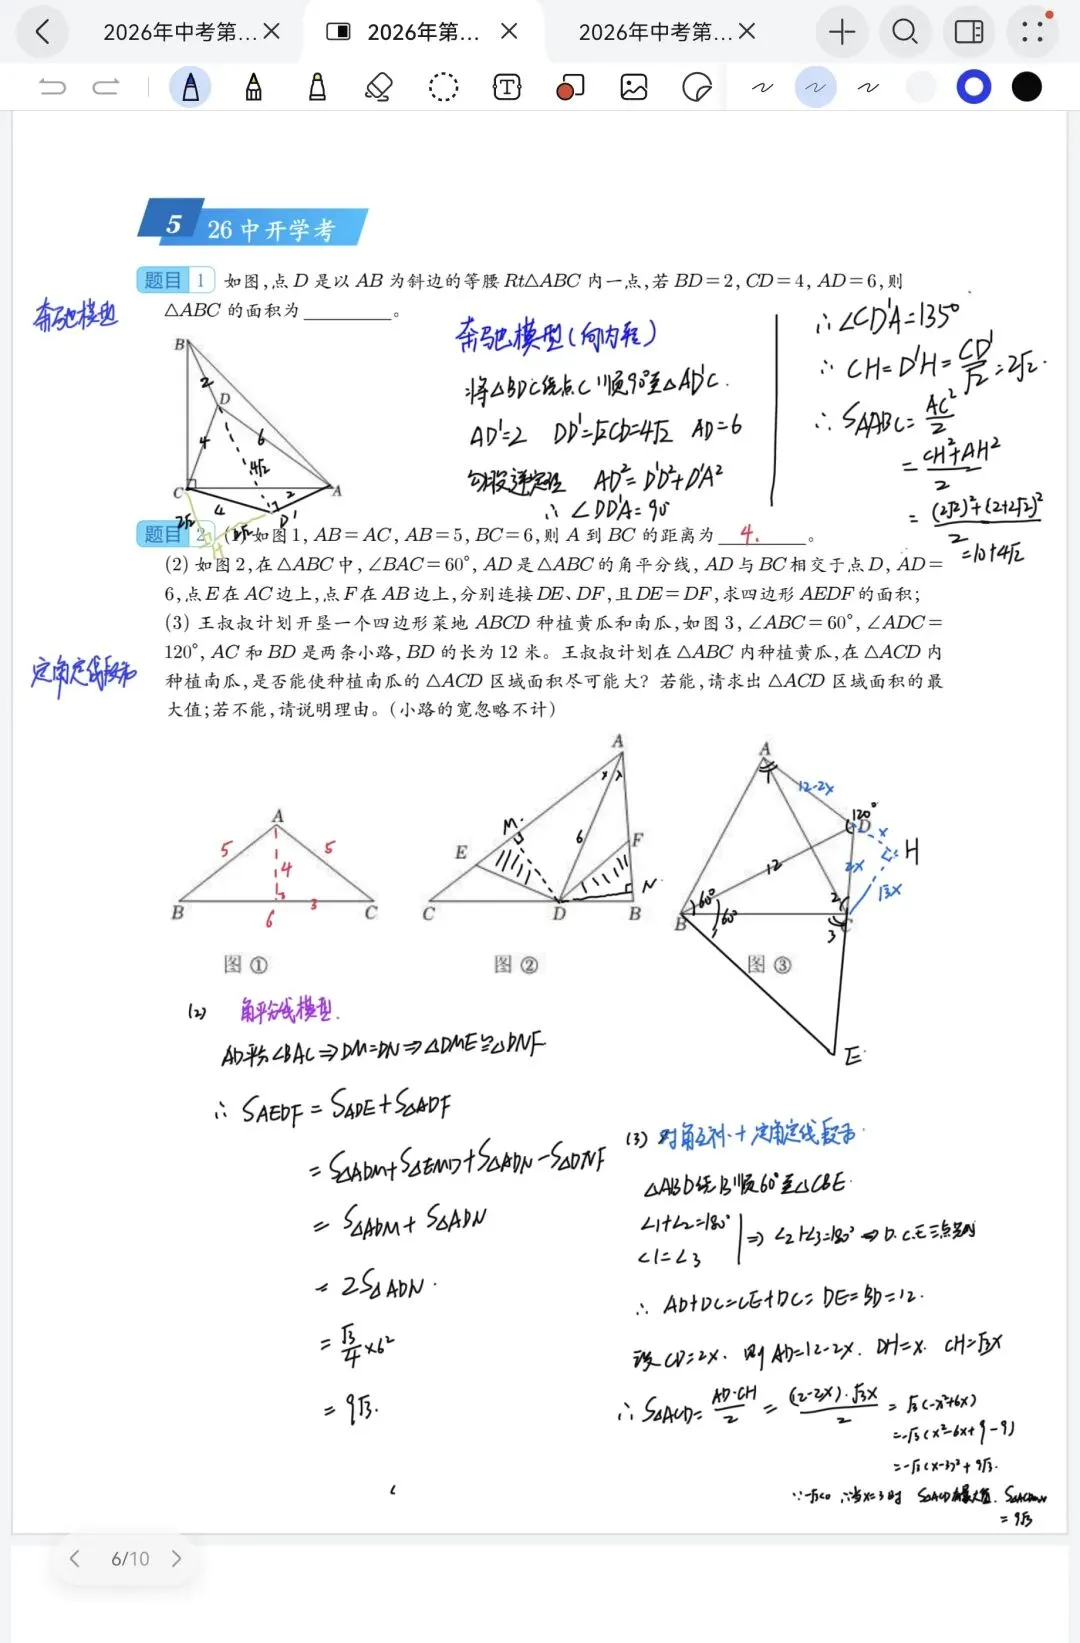 2026年中考第...
2026年第...
2026年中考第...
5 26中开学考
题目 1 如图,点 D 是以 AB 为斜边的等腰 Rt△ABC 内一点,若 BD=2, CD=4, AD=6,则
△ABC 的面积为________。
奔驰模型
B
2
D
4
6
4√2
C
A
4
2
D'
2√2
2√2
H
奔驰模型(向内转)
将△BDC绕点C顺90°至△AD'C.
AD'=2 DD'=√2CD=4√2 AD=6
勾股逆定理 AD²=D'D²+D'A²
∴∠DD'A=90°
∴∠CD'A=135°
∴ CH=D'H=CD'/√2=2√2.
∴ S△ABC=AC²/2
=(CH²+AH²)/2
=((2√2)²+(2+2√2)²)/2
=10+4√2
题目 2 (1) 如图1, AB=AC, AB=5, BC=6,则 A 到 BC 的距离为 4. 。
(2) 如图2,在△ABC中,∠BAC=60°, AD是△ABC的角平分线, AD与BC相交于点D, AD=
6,点E在AC边上,点F在AB边上,分别连接DE、DF,且DE=DF,求四边形AEDF的面积;
(3) 王叔叔计划开垦一个四边形菜地 ABCD 种植黄瓜和南瓜,如图3, ∠ABC=60°, ∠ADC=
120°, AC 和 BD 是两条小路, BD 的长为12米。王叔叔计划在△ABC内种植黄瓜,在△ACD内
种植南瓜,是否能使种植南瓜的△ACD区域面积尽可能大?若能,请求出△ACD区域面积的最
大值;若不能,请说明理由。(小路的宽忽略不计)
定角定线段和
A
5
5
4
B
6
3
C
图①
A
M
6
E
F
N
C
D
B
图②
A
1
12-2x
120°
D
x
H
12
2x
√3x
60°
60°
2
B
C
3
图③
E
(2) 角平分线模型.
AD平分∠BAC⇒DM=DN⇒△DME≌△DNF
∴ SAEDF=S△ADE+S△ADF
=S△ADM+S△EMD+S△ADN-S△DNF
=S△ADM+S△ADN
=2S△ADN.
=√3/4×6²
=9√3.
(3) 对角互补+定角定线段和
△ABD绕B顺60°至△CBE.
∠1+∠2=180°
∠1=∠3
⇒∠2+∠3=180°⇒D.C.E三点共线
∴ AD+DC=CE+DC=DE=BD=12.
设CD=2x. 则AD=12-2x. DH=x. CH=√3x
∴S△ACD=AD·CH/2=(12-2x)·√3x/2=√3(-x²+6x)
=-√3(x²-6x+9-9)
=-√3(x-3)²+9√3.
∵-√3<0 ∴当x=3时 S△ACD有最大值. S△ACDmax
=9√3
6/10